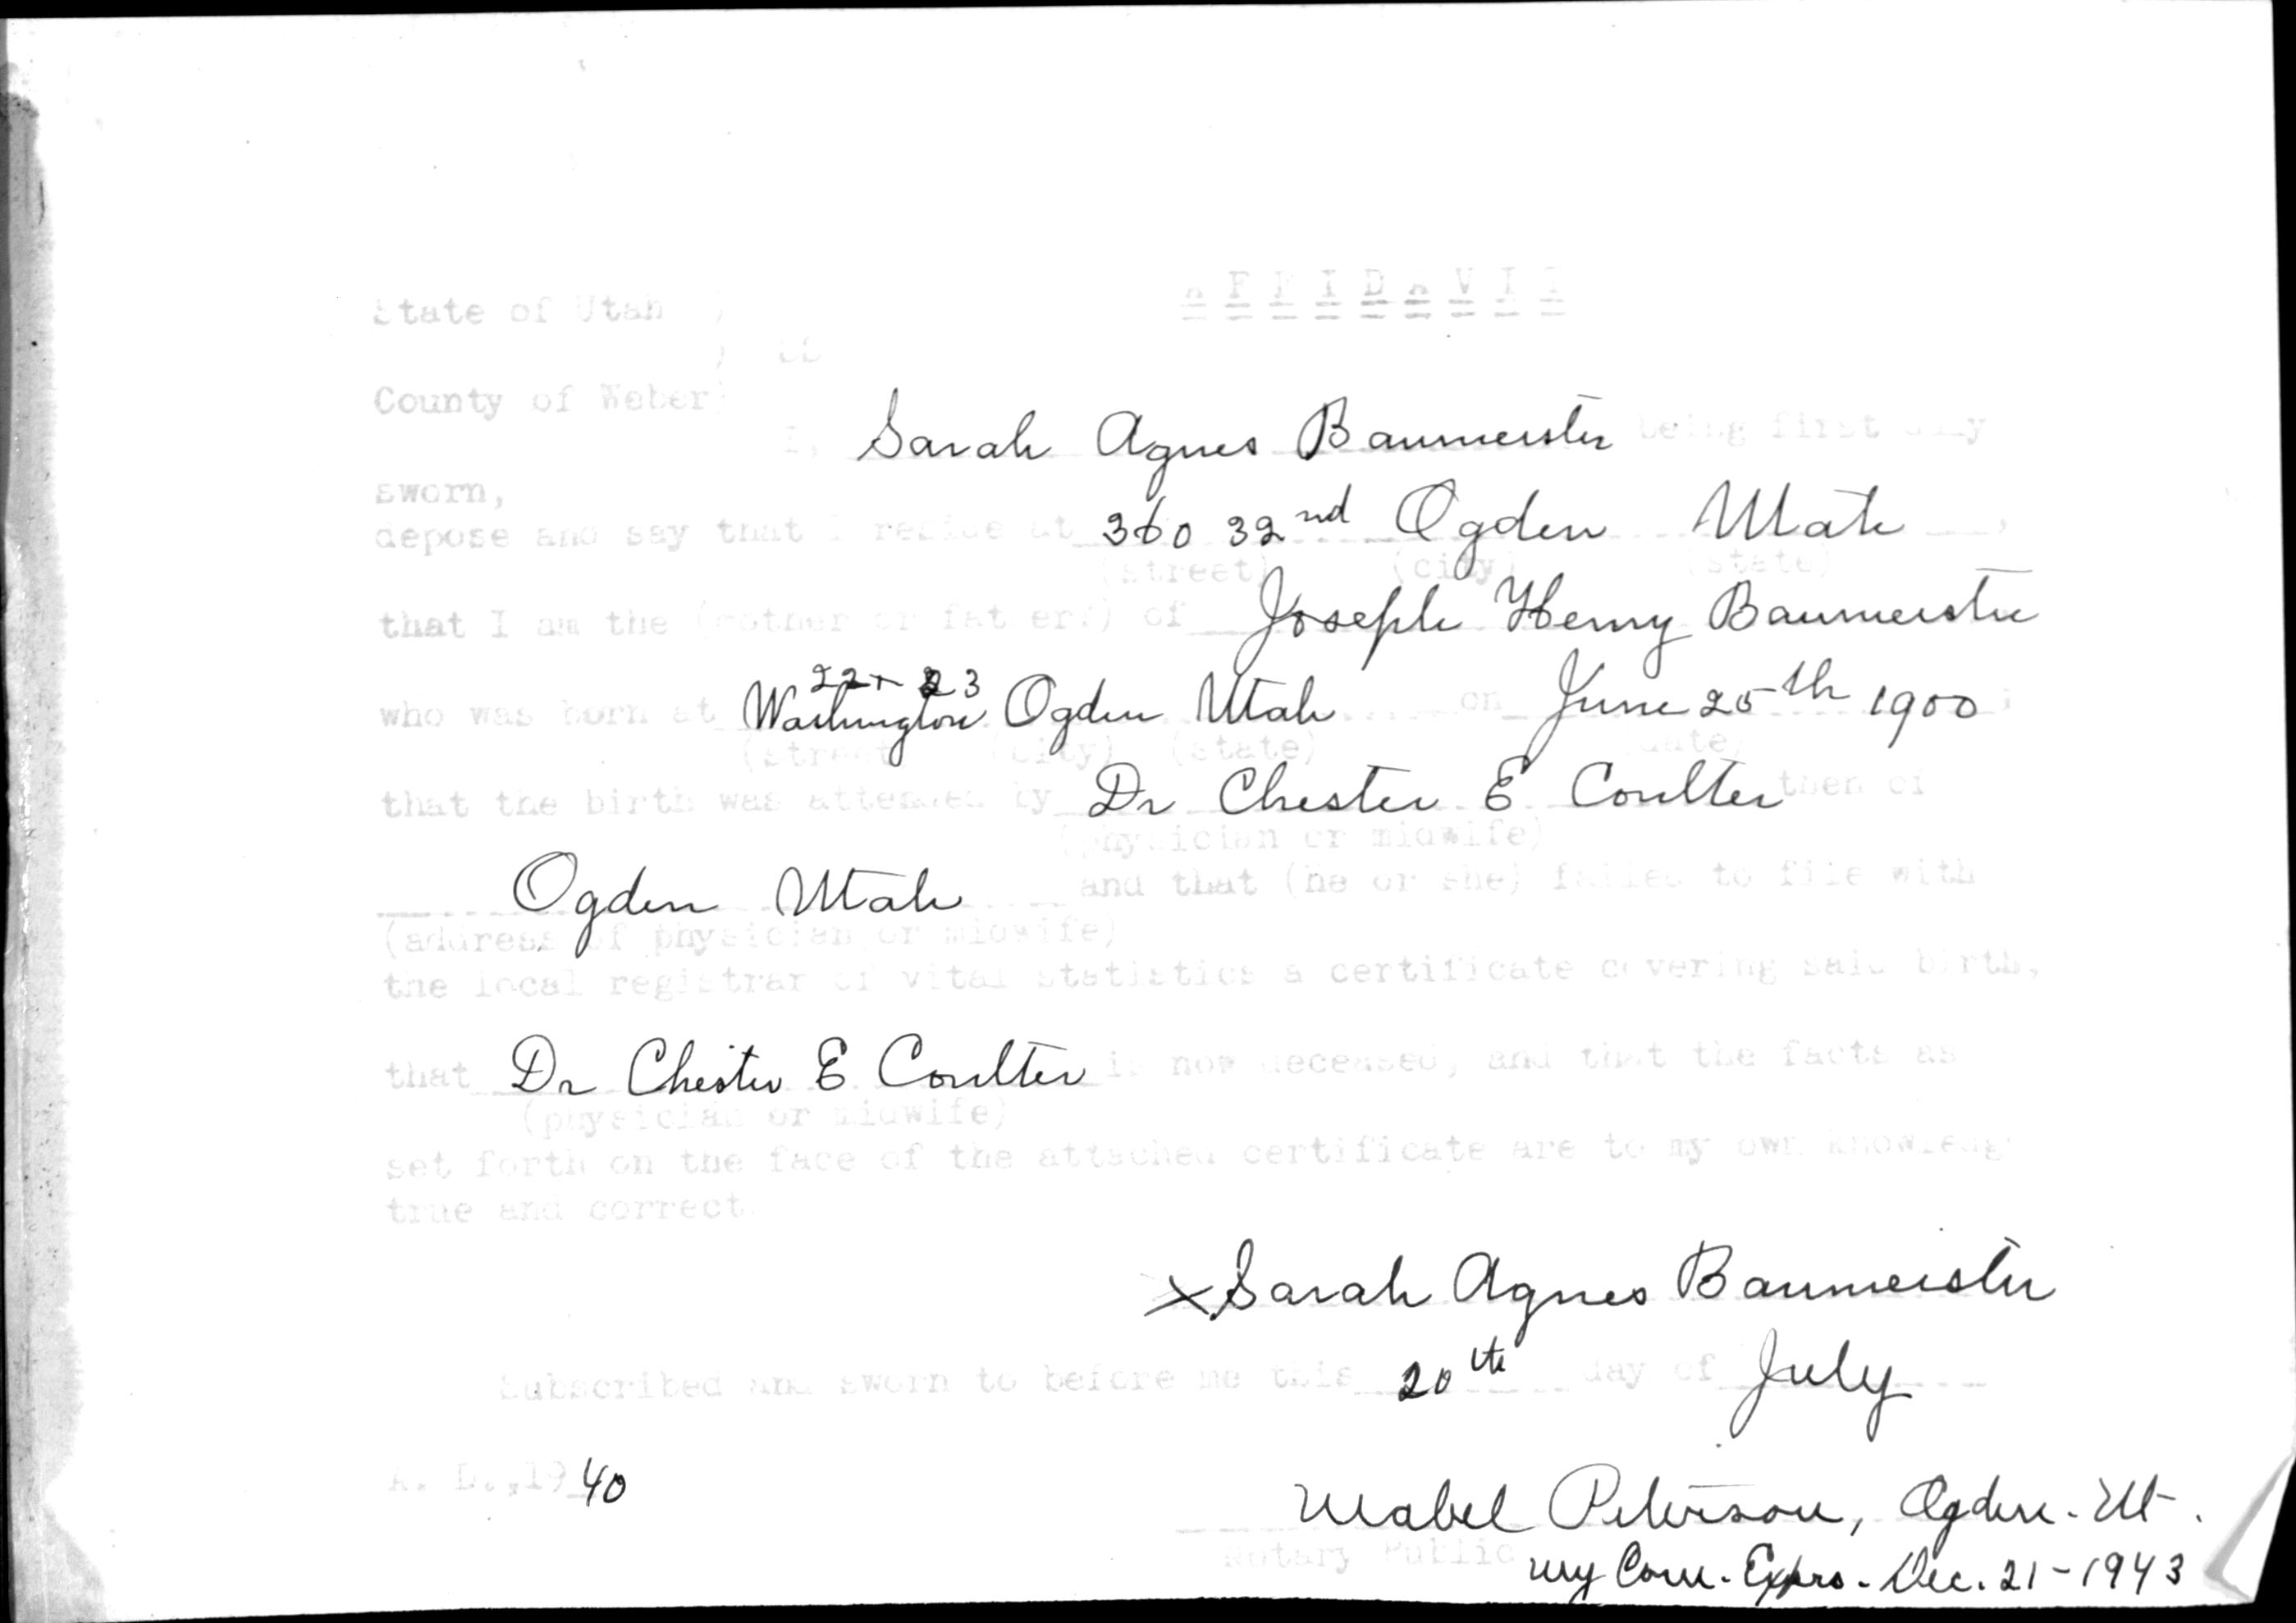 AFFIDAVIT
State of Utah )
) SS
County of Weber)
I, Sarah Agnes Baumeister being first duly
sworn,
depose and say that I reside at 360 32nd Ogden Utah,
(street) (city) (state)
that I am the (mother or father) of Joseph Henry Baumeister
22 + 23
who was born at Washington Ogden Utah on June 25th 1900;
(street) (city) (state) (date)
that the birth was attended by Dr Chester E Coulter then of
(physician or midwife)
Ogden Utah and that (he or she) failed to file with
(address of physician or midwife)
the local registrar of vital statistics a certificate covering said birth,
that Dr Chester E Coulter is now deceased, and that the facts as
(physician or midwife)
set forth on the face of the attached certificate are to my own knowledg
true and correct.
x Sarah Agnes Baumeister
Subscribed and sworn to before me this 20th day of July
A. D.,1940
Mabel Peterson, Ogden. Ut.
Notary Public
My Com. Exprs. Dec. 21-1943